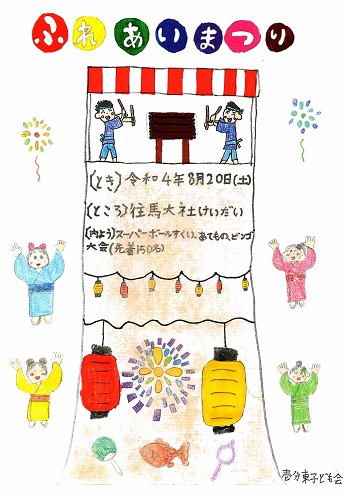 ふれあいまつり
(とき)令和4年8月20日(土)
(ところ)往馬大社けいだい
(内よう)スーパーボールすくい、あてもの、ビンゴ
大会(先着150名)
壱分東子ども会